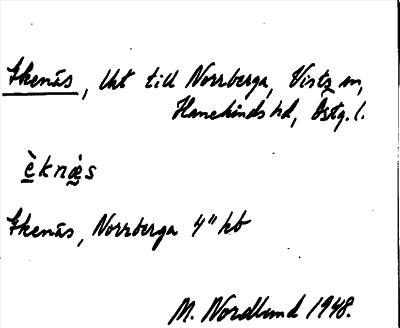 Ekenäs, lht till Norrberga, Vists sn,
Hanekinds hd, Östg. l.
èknæ̀s
Ekenäs, Norrberga 4" kb
M. Nordlund 1948.